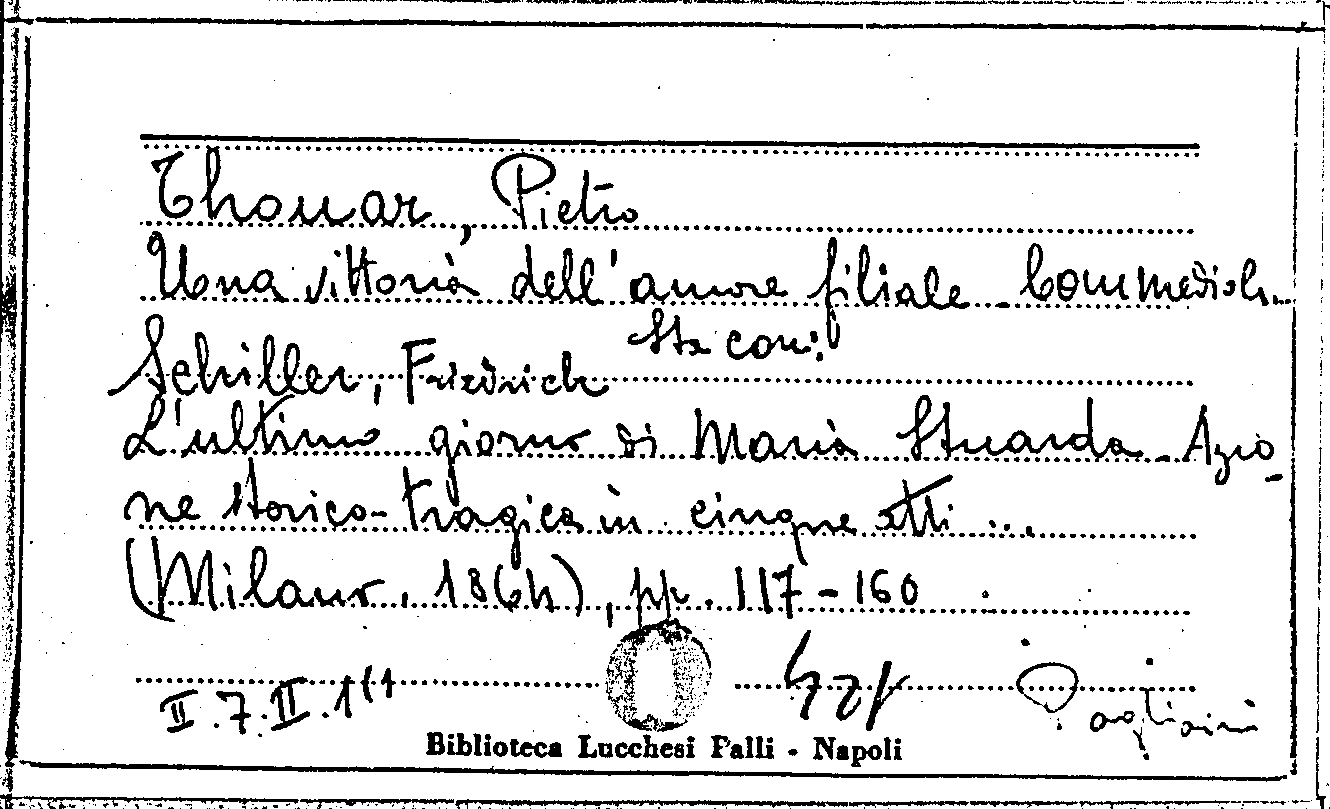 Thouar, Pietro
Una vittoria dell'amore filiale - Commediola
Sta con:
Schiller, Friedrich
L'ultimo giorno di Maria Stuarda - Azio-
ne storico-tragica in cinque atti ...
(Milano, 1864), pp. 117-160
II.7.II.1
Pagliaini
Biblioteca Lucchesi Palli - Napoli